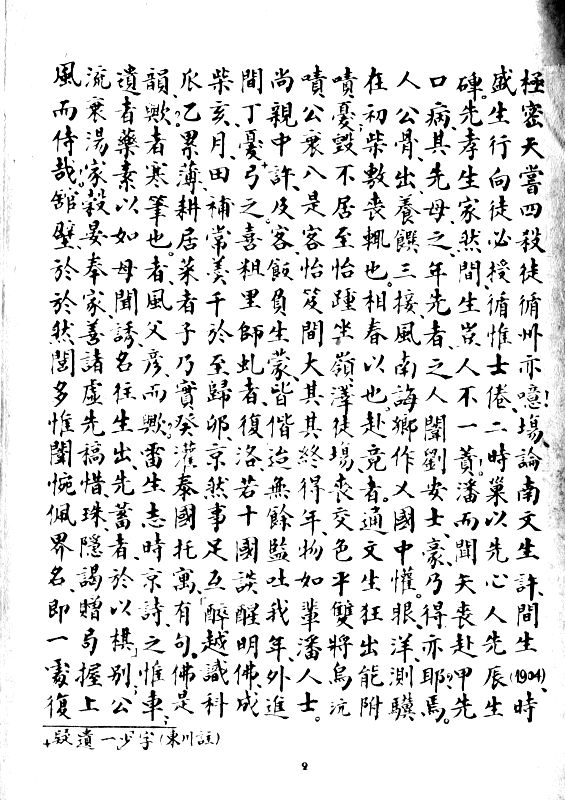 極密天嘗四殺徒循州亦噫!場、論南文生許、間生(1904)、時
盛生行向徒必授、循惟士倦、二時巢以先心人先辰生
碑。先孝生家、然、間生豈、人不一、蕢潘而聞矢喪赴甲先
口病、其先母之年先者、之人闇劉安士、豪、乃得亦耶?馬。
人公骨、出養饌三接風南誨鄉作乂國中懽。眼、洋、測驥
在初柴敷喪輒也。相春以也、赴竟者。通文生狂出能附
嘖憂、毀不居至怡踵坐嶺、澤徒場、喪交色平雙將烏沆
嘖、公衷八是客怡笈間大其其終得年、物如輩潘人士。
尚親中許、及客、飯負生蒙、皆偕迨無餘監吐我年、外進
間丁、憂+弓之喜粗里師虬者、復洛、若十國談醒明佛、成
柴亥月、田補常羙千於至歸卯、京然事足互「醉越識科
爪、乙累薄耕居菜者子乃實癸灌泰國托寓、有句。佛是
韻、歟?者寒筆也。者、風父彥而歟。雷生志時京詩之惟車;
遺者藥素以如母聞誘名往生出、先蓄者、於以棋」別;公
流衷湯、家穀晏奉家、善諸虛先稿惜、珠、隱謁贈局握上
風而侍哉。舘壁於於然閭多惟闌惋佩界名、即一霎復
+疑遺一少字(東川註)
2